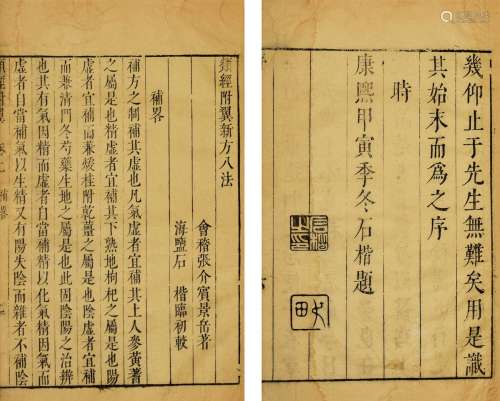 幾仰止于先生無難矣用是識
其始末而為之序
時
康熙甲寅季冬石楷題
類經附翼新方八法
會稽張介賓景岳著
海鹽石　楷臨初較
補畧
補方之制補其虛也凡氣虛者宜補其上人參黃蓍
之屬是也精虛者宜補其下熟地枸杞之屬是也陽
虛者宜補而兼煖桂附乾薑之屬是也陰虛者宜補
而兼清門冬芍藥生地之屬是也此固陰陽之治辨
也其有氣因精而虛者自當補精以化氣精因氣而
虛者自當補氣以生精又有陽失陰而離者不補陰
類經附翼　補畧